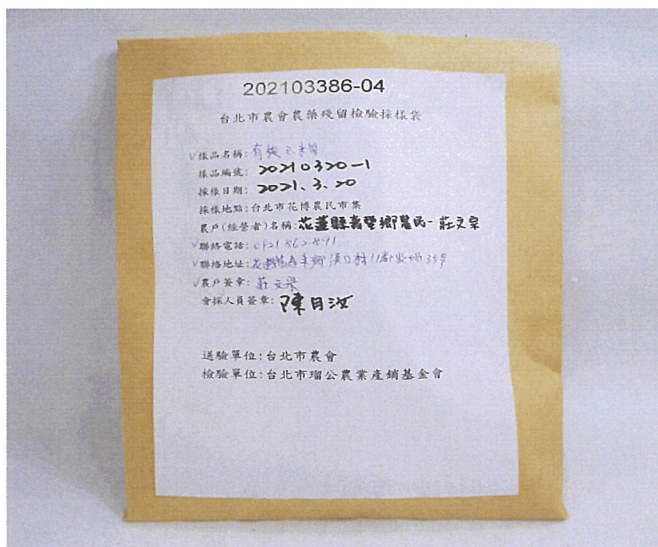 202103386-04
台北市農會農藥殘留檢驗採樣袋
✓樣品名稱:有機
樣品編號: 20210320-1
採樣日期: 2021.3.20
採樣地點:台北市花博農民市集
農戶(經營者)名稱:花蓮縣壽豐鄉農民-莊文
✓聯絡電話:
✓聯絡地址:花蓮縣壽豐鄉溪口村
✓農戶簽章:莊文
會採人員簽章:陳月汝
送驗單位:台北市農會
檢驗單位:台北市瑠公農業產銷基金會